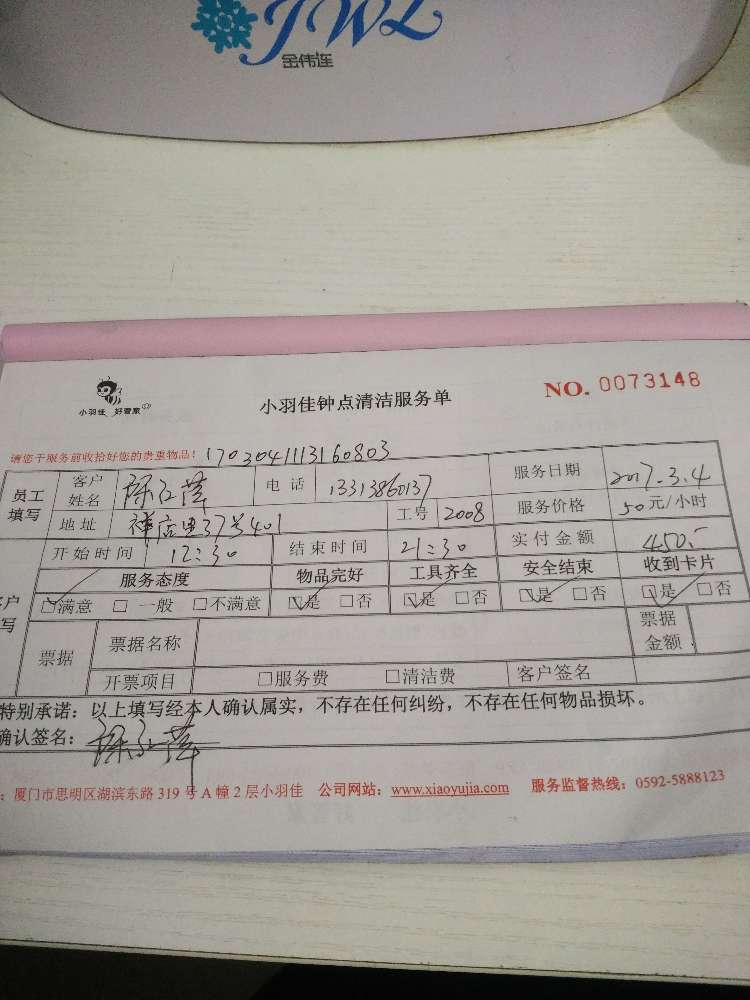 JWL
金伟连
小羽佳 好管家
小羽佳钟点清洁服务单
NO. 0073148
请您于服务前收拾好您的贵重物品! 1703041113160803
员工填写 客户姓名 电话 13313860137 服务日期 2017.3.4
地址 祥店里37号401 工号 2008 服务价格 50元/小时
开始时间 12:30 结束时间 21:30 实付金额 450.-
服务态度 物品完好 工具齐全 安全结束 收到卡片
☑满意 □一般 □不满意 ☑是 □否 ☑是 □否 ☑是 □否 ☑是 □否
票据 票据名称 票据金额
开票项目 □服务费 □清洁费 客户签名
特别承诺：以上填写经本人确认属实，不存在任何纠纷，不存在任何物品损坏。
确认签名：
：厦门市思明区湖滨东路 319 号 A 幢 2 层小羽佳 公司网站：www.xiaoyujia.com 服务监督热线：0592-5888123